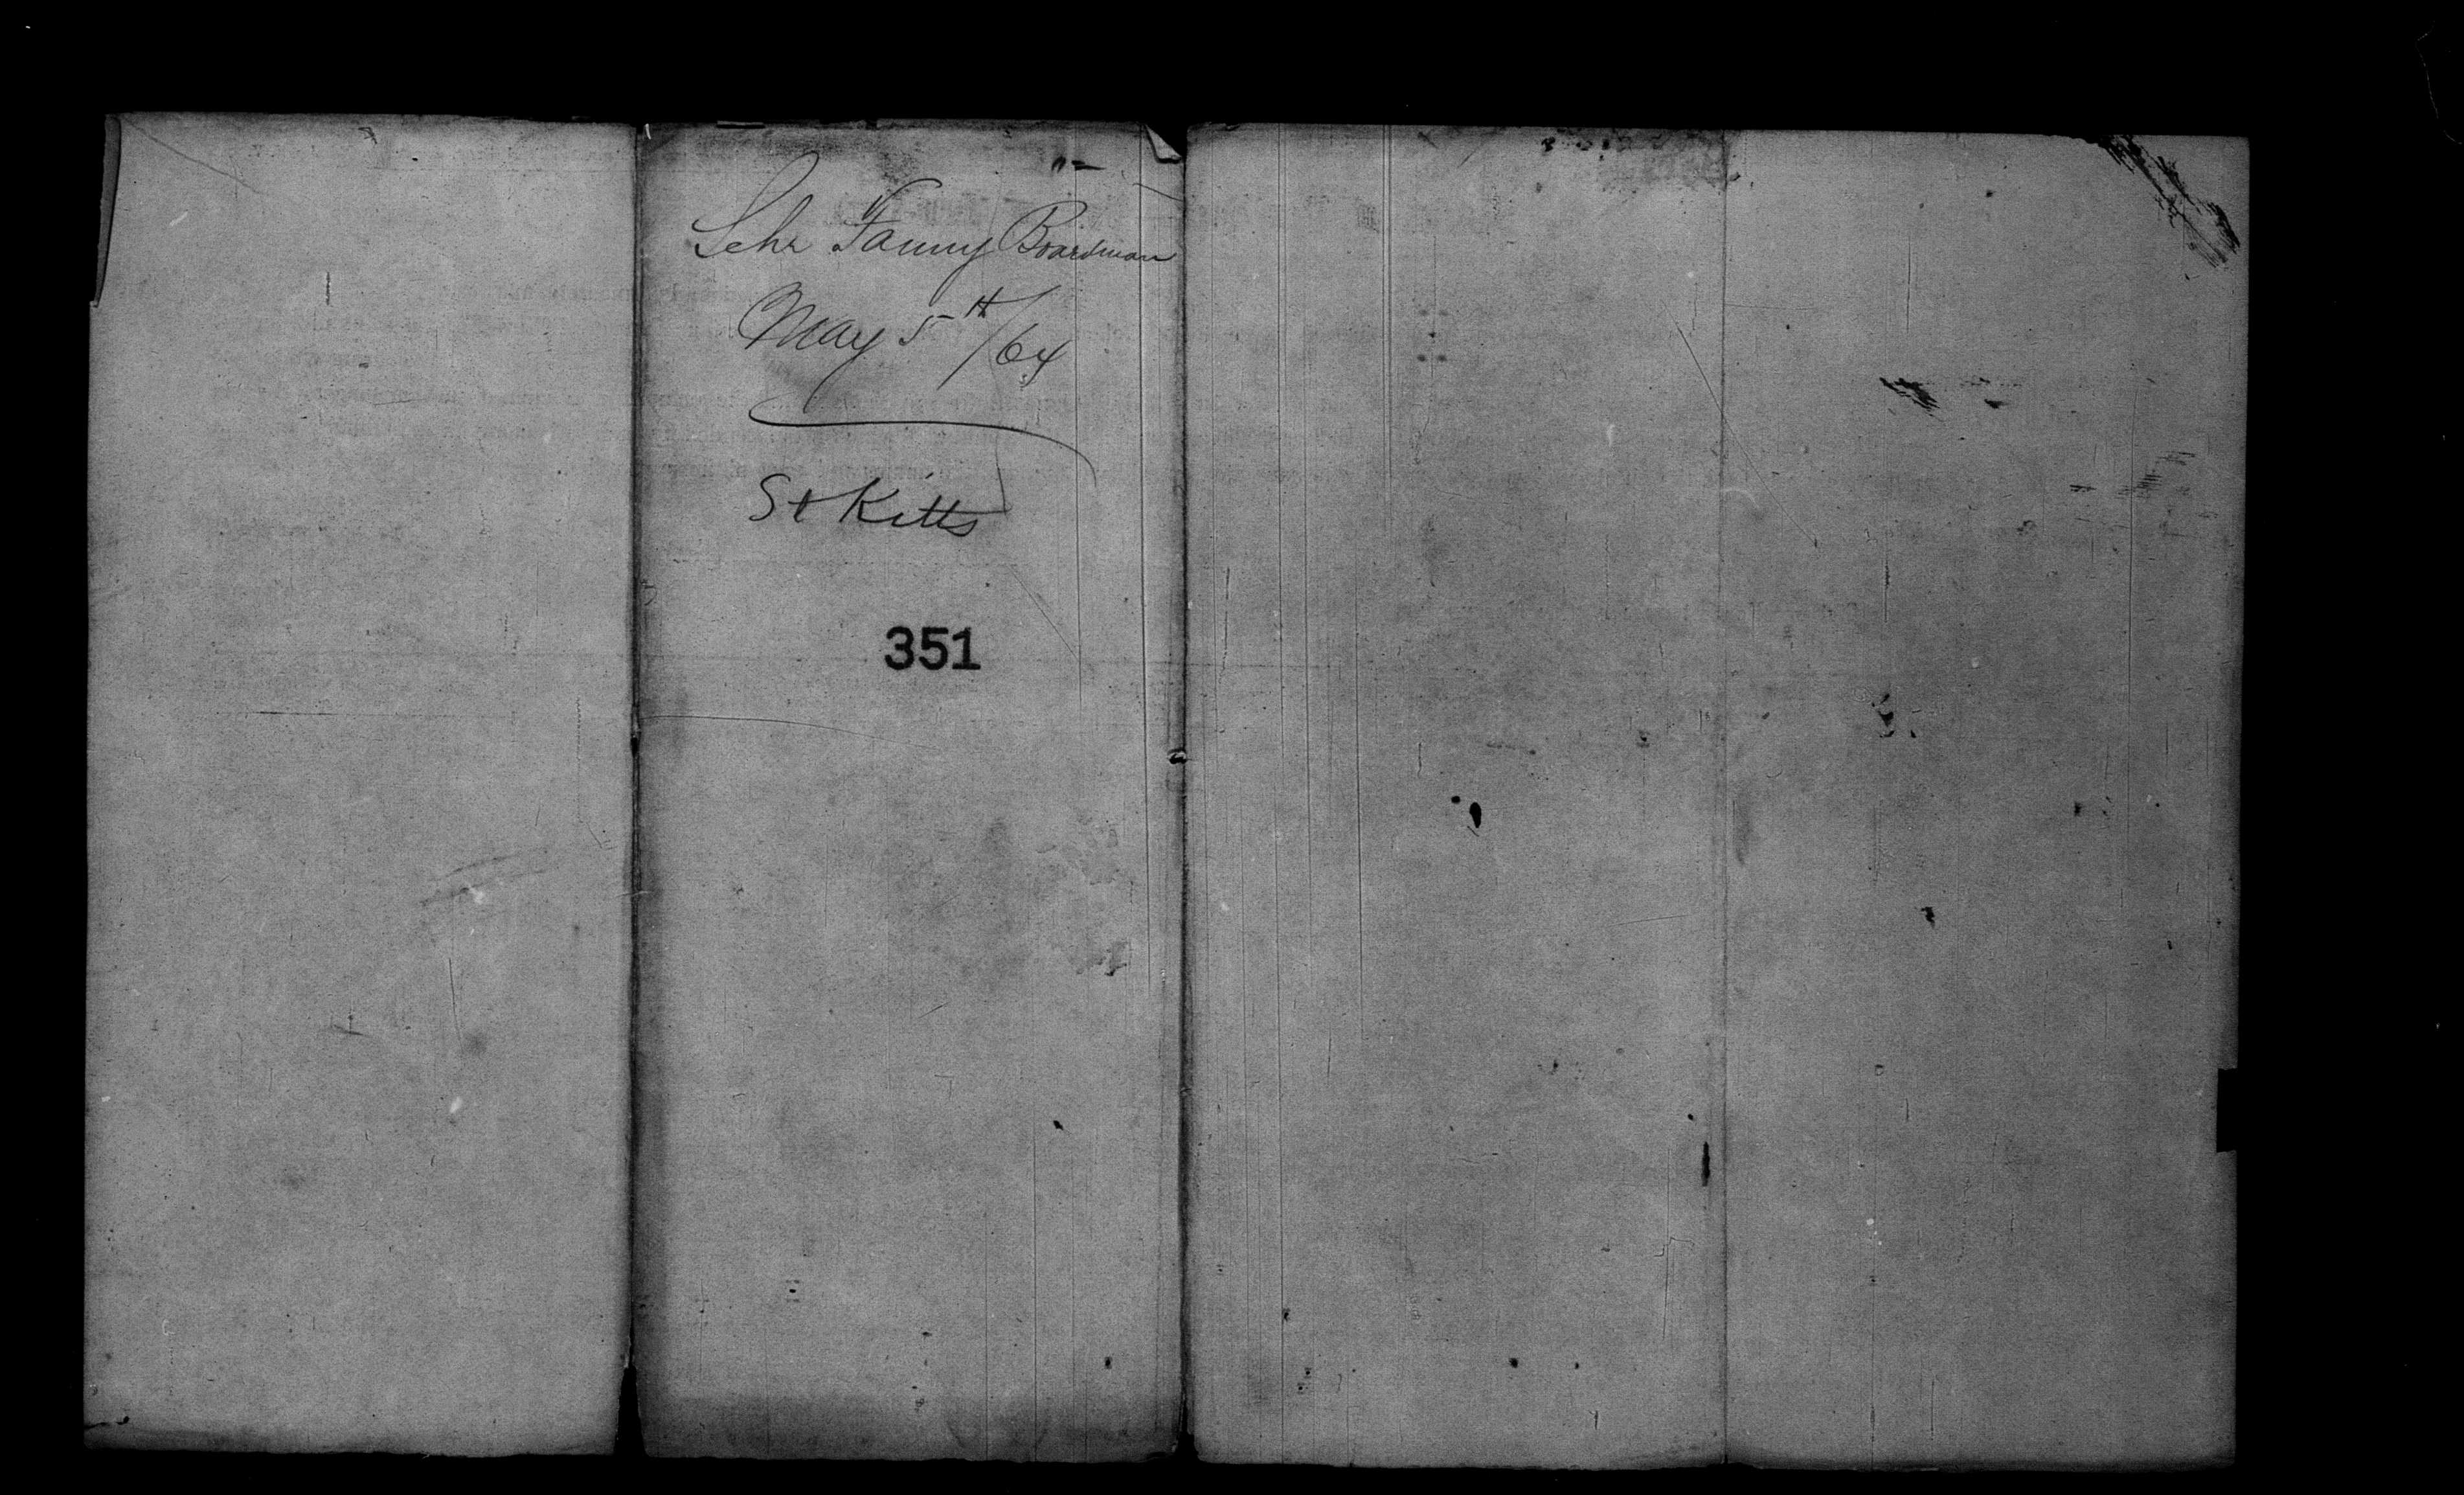 Schr Fanny Boardman
May 5th/64
St Kitts
351